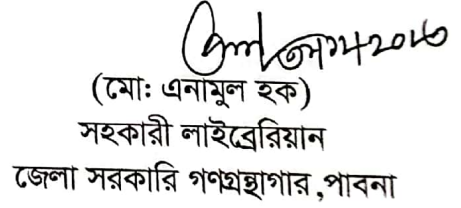 (মো: এনামুল হক)
সহকারী লাইব্রেরিয়ান
জেলা সরকারি গণগ্রন্থাগার,পাবনা